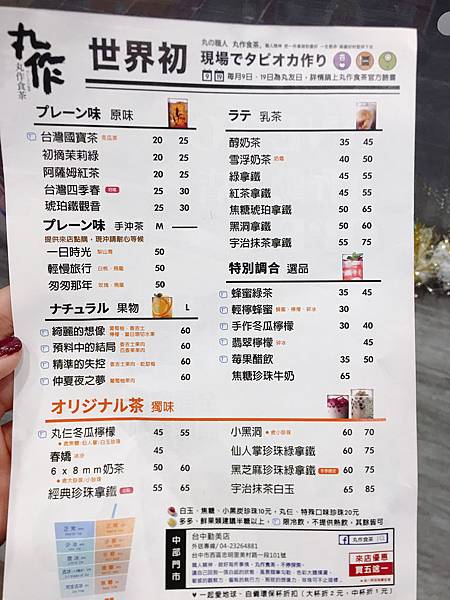 丸作
丸作食茶
世界初
丸の職人 丸作食茶,
現場でタピオカ作り
9 19 每月9日、19日為丸友日,詳情請上丸作食茶官方臉書
プレーン味 原味
台灣國寶茶 冬瓜茶 20 25
初摘茉莉綠 20 25
阿薩姆紅茶 20 25
台灣四季春 25 30
琥珀鐵觀音 25 30
プレーン味 手沖茶 M
提供來店點購,現沖請耐心等候
一日時光 梨山青 50
輕慢旅行 白桃、烏龍 50
匆匆那年 玫瑰、烏龍 50
ナチュラル 果物 L
綺麗的想像 60
預料中的結局 百香果果肉 60
精準的失控 60
仲夏夜之夢 葡萄柚果肉 60
ラテ 乳茶
醇奶茶 35 45
雪浮奶茶 奶霜 40 50
綠拿鐵 45 55
紅茶拿鐵 45 55
焦糖琥珀拿鐵 50 65
黑洞拿鐵 50 60
宇治抹茶拿鐵 55 75
特別調合 選品
蜂蜜綠茶 35 45
輕檸蜂蜜 蜂蜜、檸檬、碎冰 30
手作冬瓜檸檬 30 40
翡翠檸檬 碎冰 45
莓果醋飲 35 50
焦糖珍珠牛奶 65
オリジナル茶 獨味
丸仨冬瓜檸檬 45 55
春嬌 冰沙 45
6 x 8mm奶茶 50 60
經典珍珠拿鐵 55 75
小黑洞 60 70
仙人掌珍珠綠拿鐵 60 75
黑芝麻珍珠綠拿鐵 60 75
宇治抹茶白玉 65 85
白玉、焦糖、小黑炭珍珠10元,丸仨、特殊口味珍珠20元
多多、鮮果類建議半糖以上, 限冷飲,不提供熱飲,其餘皆可
中部門市
台中勤美店
外送專線/04-23264881
台中市西區忠明里美村路一段101號
丸作食茶
來店優惠
買五送一
♥ 一起愛地球,自備環保杯折扣(大杯折2元,中杯折1元)